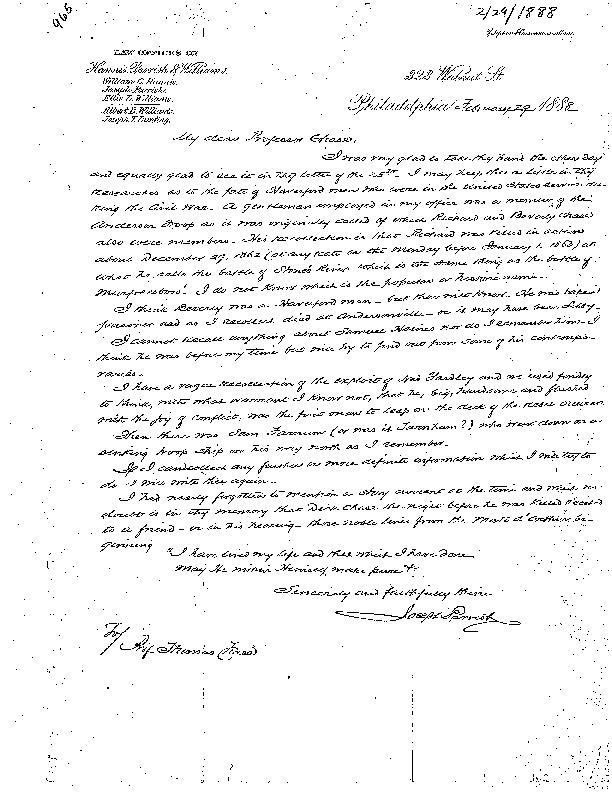 965
2/29/1888
LAW OFFICES OF
Harris, Parrish & Williams.
William C. Harris.
Joseph Parrish.
Ellis D. Williams.
Albert B. Williams.
Joseph T. Bunting.
222 Walnut St.
Philadelphia February 29 1888
My dear Professor Chase,
I was very glad to take thy hand the other day
and equally glad to see it in thy letter of the 28th. I may help thee a little in thy
researches as to the fate of Haverford men who were in the United States service du-
ring the Civil War. A gentleman employed in my office was a member of the
Anderson Troop as it was originally called of which Richard and Beverly Chase
also were members. His recollection is that Richard was killed in action
about December 29, 1862 (at any rate on the Monday before January 1, 1863) at
what he calls the battle of Stone's River which is the same thing as the battle of
Murfreesboro'. I do not know which is the popular or historic name.
I think Beverly was a Haverford man - but thou wilt know. He was taken
prisoner and as I recollect died at Andersonville - or it may have been Libby.
I cannot recall anything about Samuel Haines nor do I remember him. I
think he was before my time but will try to find out from some of his contempo-
raries.
I have a vague recollection of the exploit of Ned Yardley and we used fondly
to think, with what warrant I know not, that he, big, handsome and flushed
with the joy of conflict, was the first man to leap on the deck of the
Then there was Sam Farnum (or was it Farnham?) who went down on a
sinking troop ship on his way north as I remember.
If I can collect any further or more definite information which I will try to
do I will write thee again.
I had nearly forgotten to mention a story current at the time and which no
doubt is in thy memory that Dick Chase the night before he was killed recited
to a friend - or in his hearing - those noble lines from the Morte d'Arthur be-
ginning
"I have lived my life and that which I have done
May He within Himself make pure" &
Sincerely and faithfully thine
Joseph Parrish
To/
Prof Thomas Chase